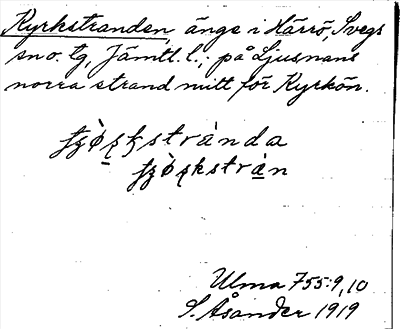 Kyrkstranden, änge i Härrö, Svegs
sno. tg, Jämtl. l.; på Ljusnans
norra strand mitt för Kyrkön.
Ulma 755:9,10
S. Åsander 1919